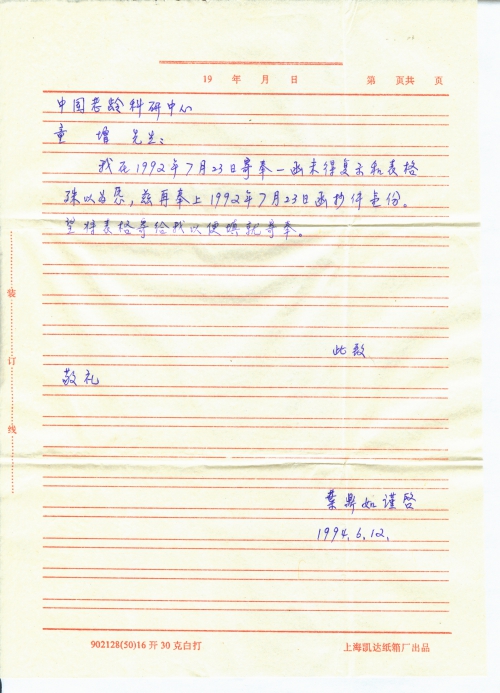 19 年 月 日 第 页共 页
中国老龄科研中心
童 增 先生:
我在1992年7月23日寄奉一函未得复示和表格
殊以为念,兹再奉上1992年7月23日函抄件壱份。
望将表格寄给我以便填就寄奉。
此致
敬礼
叶鼎如谨启
1994.6.12.
装
订
线
902128(50)16开30克白打 上海凯达纸箱厂出品